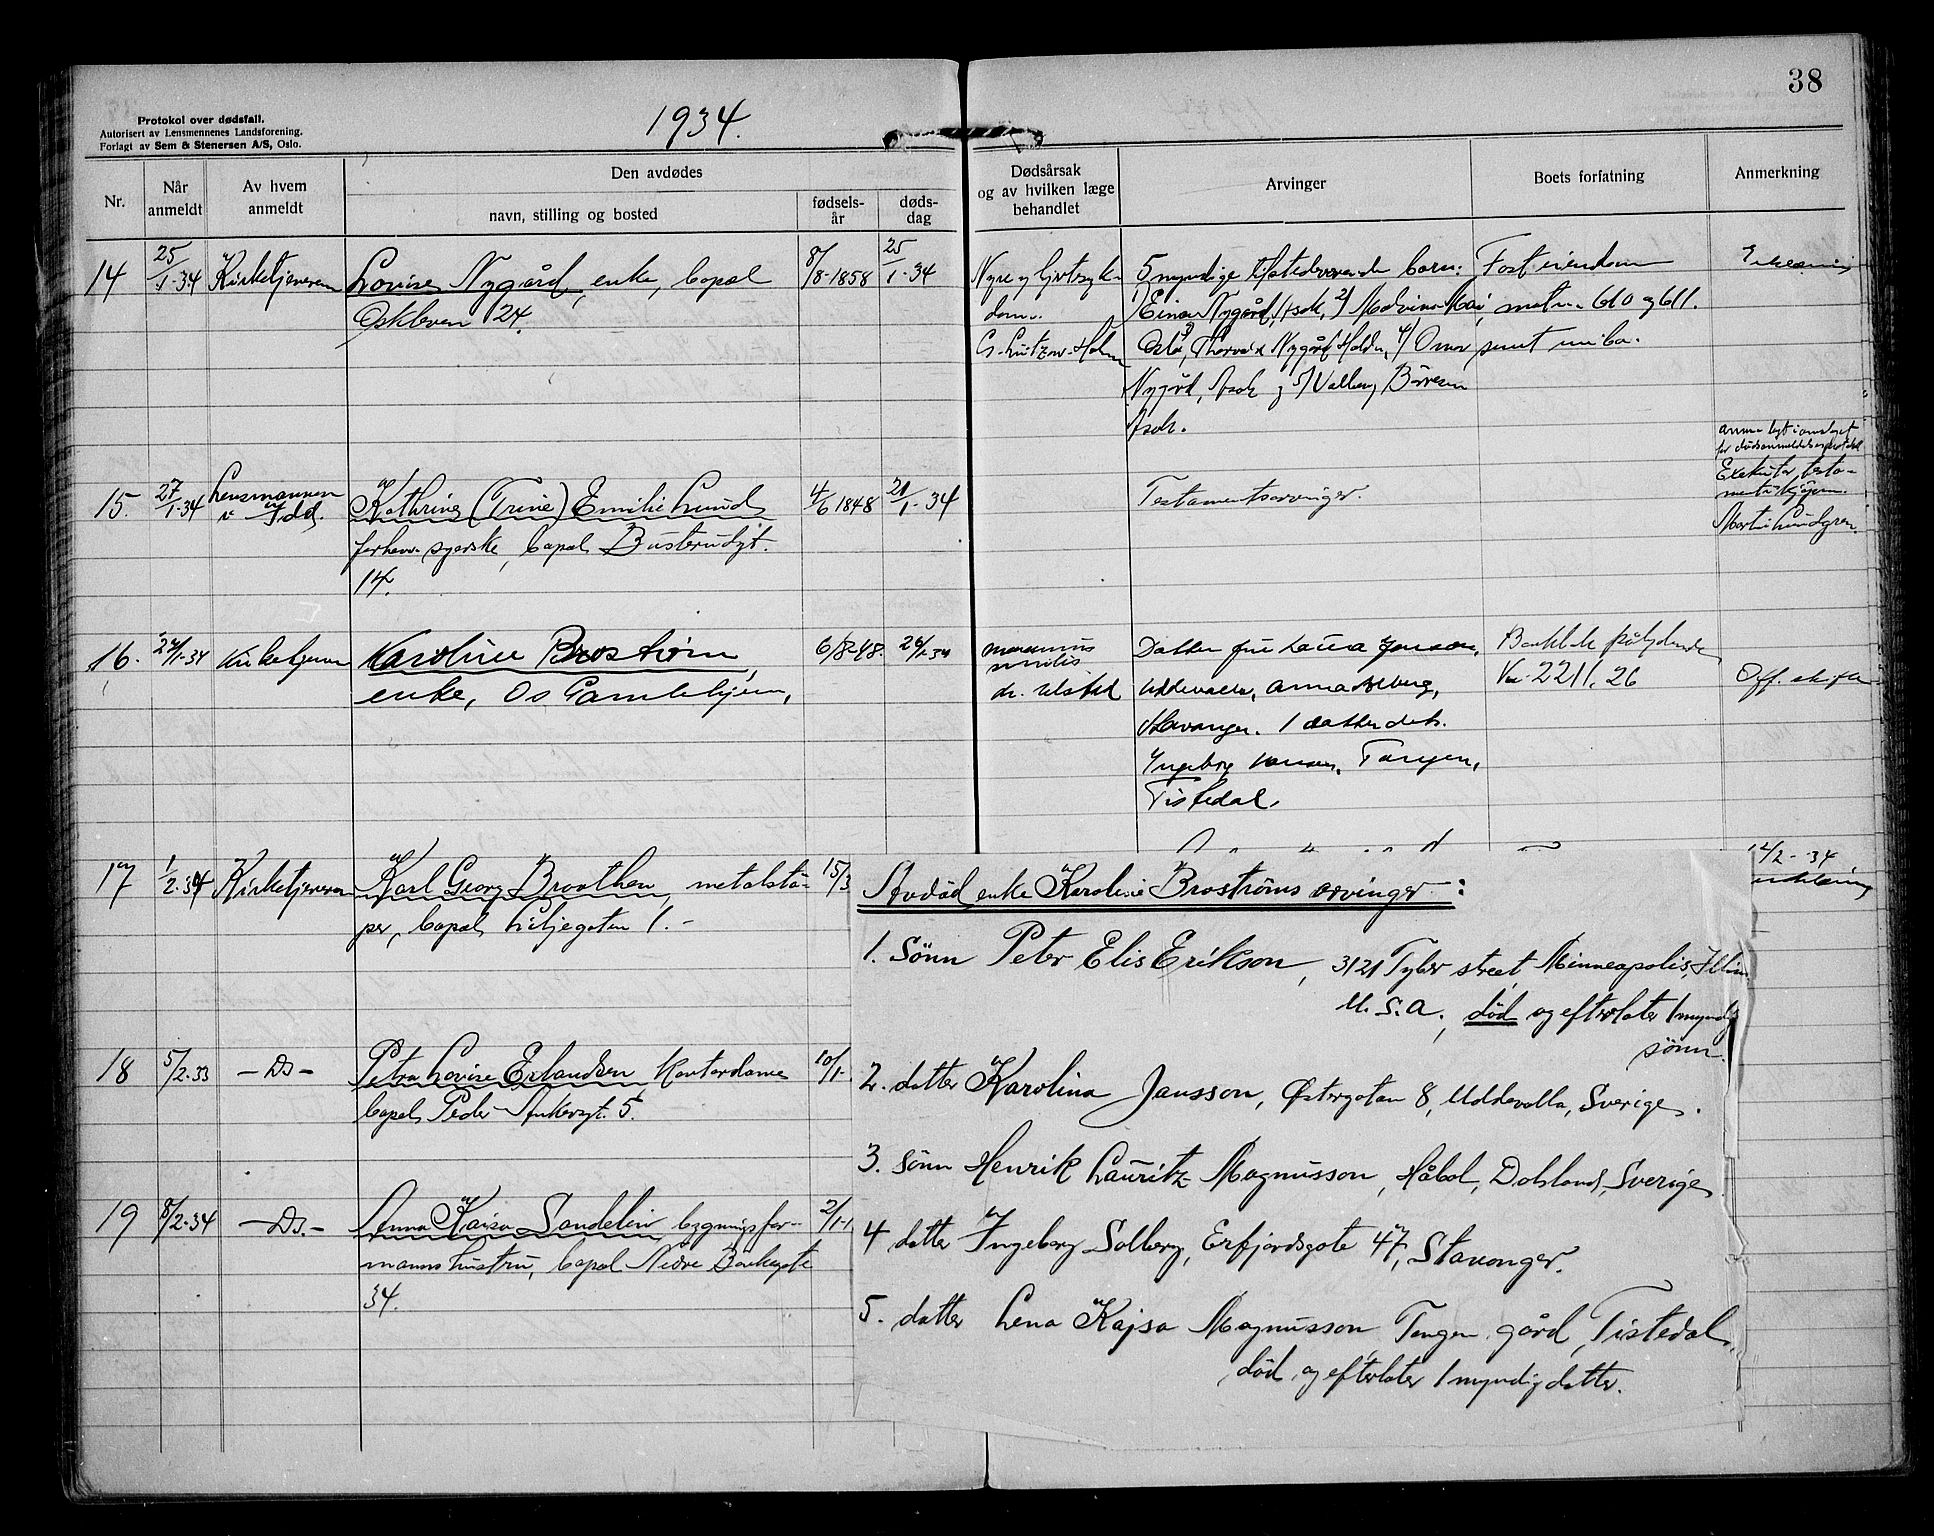 38
Protokol over dødsfall.
Autorisert av Lensmennenes Landsforening.
Forlagt av Sem & Stenersen A/S, Oslo.
1934.
Nr.
Når anmeldt
Av hvem anmeldt
Den avdødes
navn, stilling og bosted
fødsels-år
døds-dag
Dødsårsak og av hvilken læge behandlet
Arvinger
Boets forfatning
Anmerkning
14 25/1-34 Kirketjeneren Lovise Nygård, enke, bopæl 8/8-1858 25/1-34
Oskleven 24.
Nyre og hjertesyk-
dom.
G. Lützow-Holm
5 myndige tilstedeværende barn:
1) Einar Nygård, Asak, 2)
Oslo, 3) Thorvald Nygård Halden, 4)
Nygård, Asak og 5) Valborg Børresen
Asak.
Fast eiendom
matr. 610 og 611.
samt innbo.
15. 27/1-34 Lensmannen i Idd. Kathrine (Trine) Emilie Lund 4/6 1848 21/1-34
forhenv. syerske, bopæl Busterudgt.
14.
Testamentsarvinger.
Eksekutor testa-
Martin Lundgren.
16. 27/1-34 Kirketjeneren Karoline Brostrøm, 6/8-48. 26/1-34
enke, Os Gamlehjem,
marasmus
senilis
dr. Ulstad
Datter fru Laura Jonsson,
Uddevalla, Anna Solberg,
Stavanger. 1 datterdatr.
Ingeborg Hansen, Tangen,
Tistedal.
Bankbok pålydende
Kr. 2211,26
Off. skifte
17 1/2-34 Kirketjeneren Karl Georg Braathen, metalstø- 15/3
per, bopæl Liljegaten 1.-
12/2-34
18 5/2-33 - Ds - Petra Lovise Erlandsen Kontordame 10/1-
bopæl Peder Ankersgt. 5.
19 8/2-34 - Ds. - Anna Kaisa Sandelin bygningsfor- 2/1-1
manns hustru, bopæl Nedre Bankegate
34.
Avdød enke Karoline Brostrøms arvinger:
1. Sønn Peter Elis Erikson, 3121 Tyler street, Minneapolis, Illin
U.S.A., død og efterlater 1 myndig
sønn.
2. datter Karolina Jansson, Østergatan 8, Uddevalla, Sverige.
3. Sønn Henrik Lauritz Magnusson, Håbol, Dalsland, Sverige
4 datter Ingeborg Solberg, Erfjordsgate 47, Stavanger.
5. datter Lena Kajsa Magnusson, Tangen gård, Tistedal.
død, og efterlater 1 myndig datter.